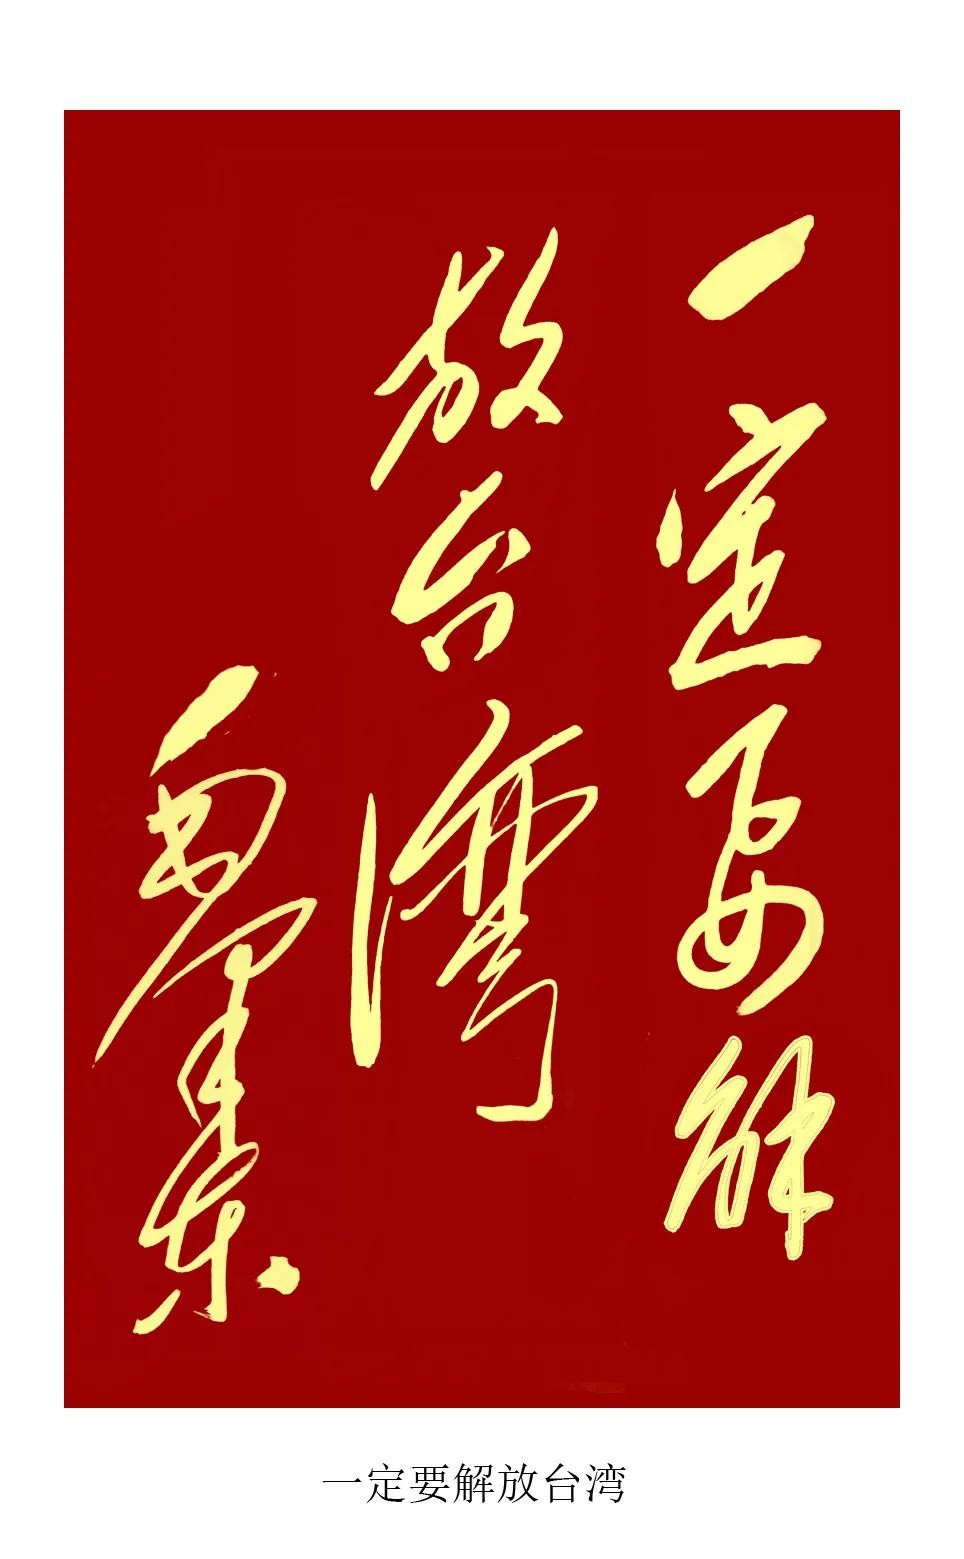 一定要解
放台湾
毛泽东
一定要解放台湾